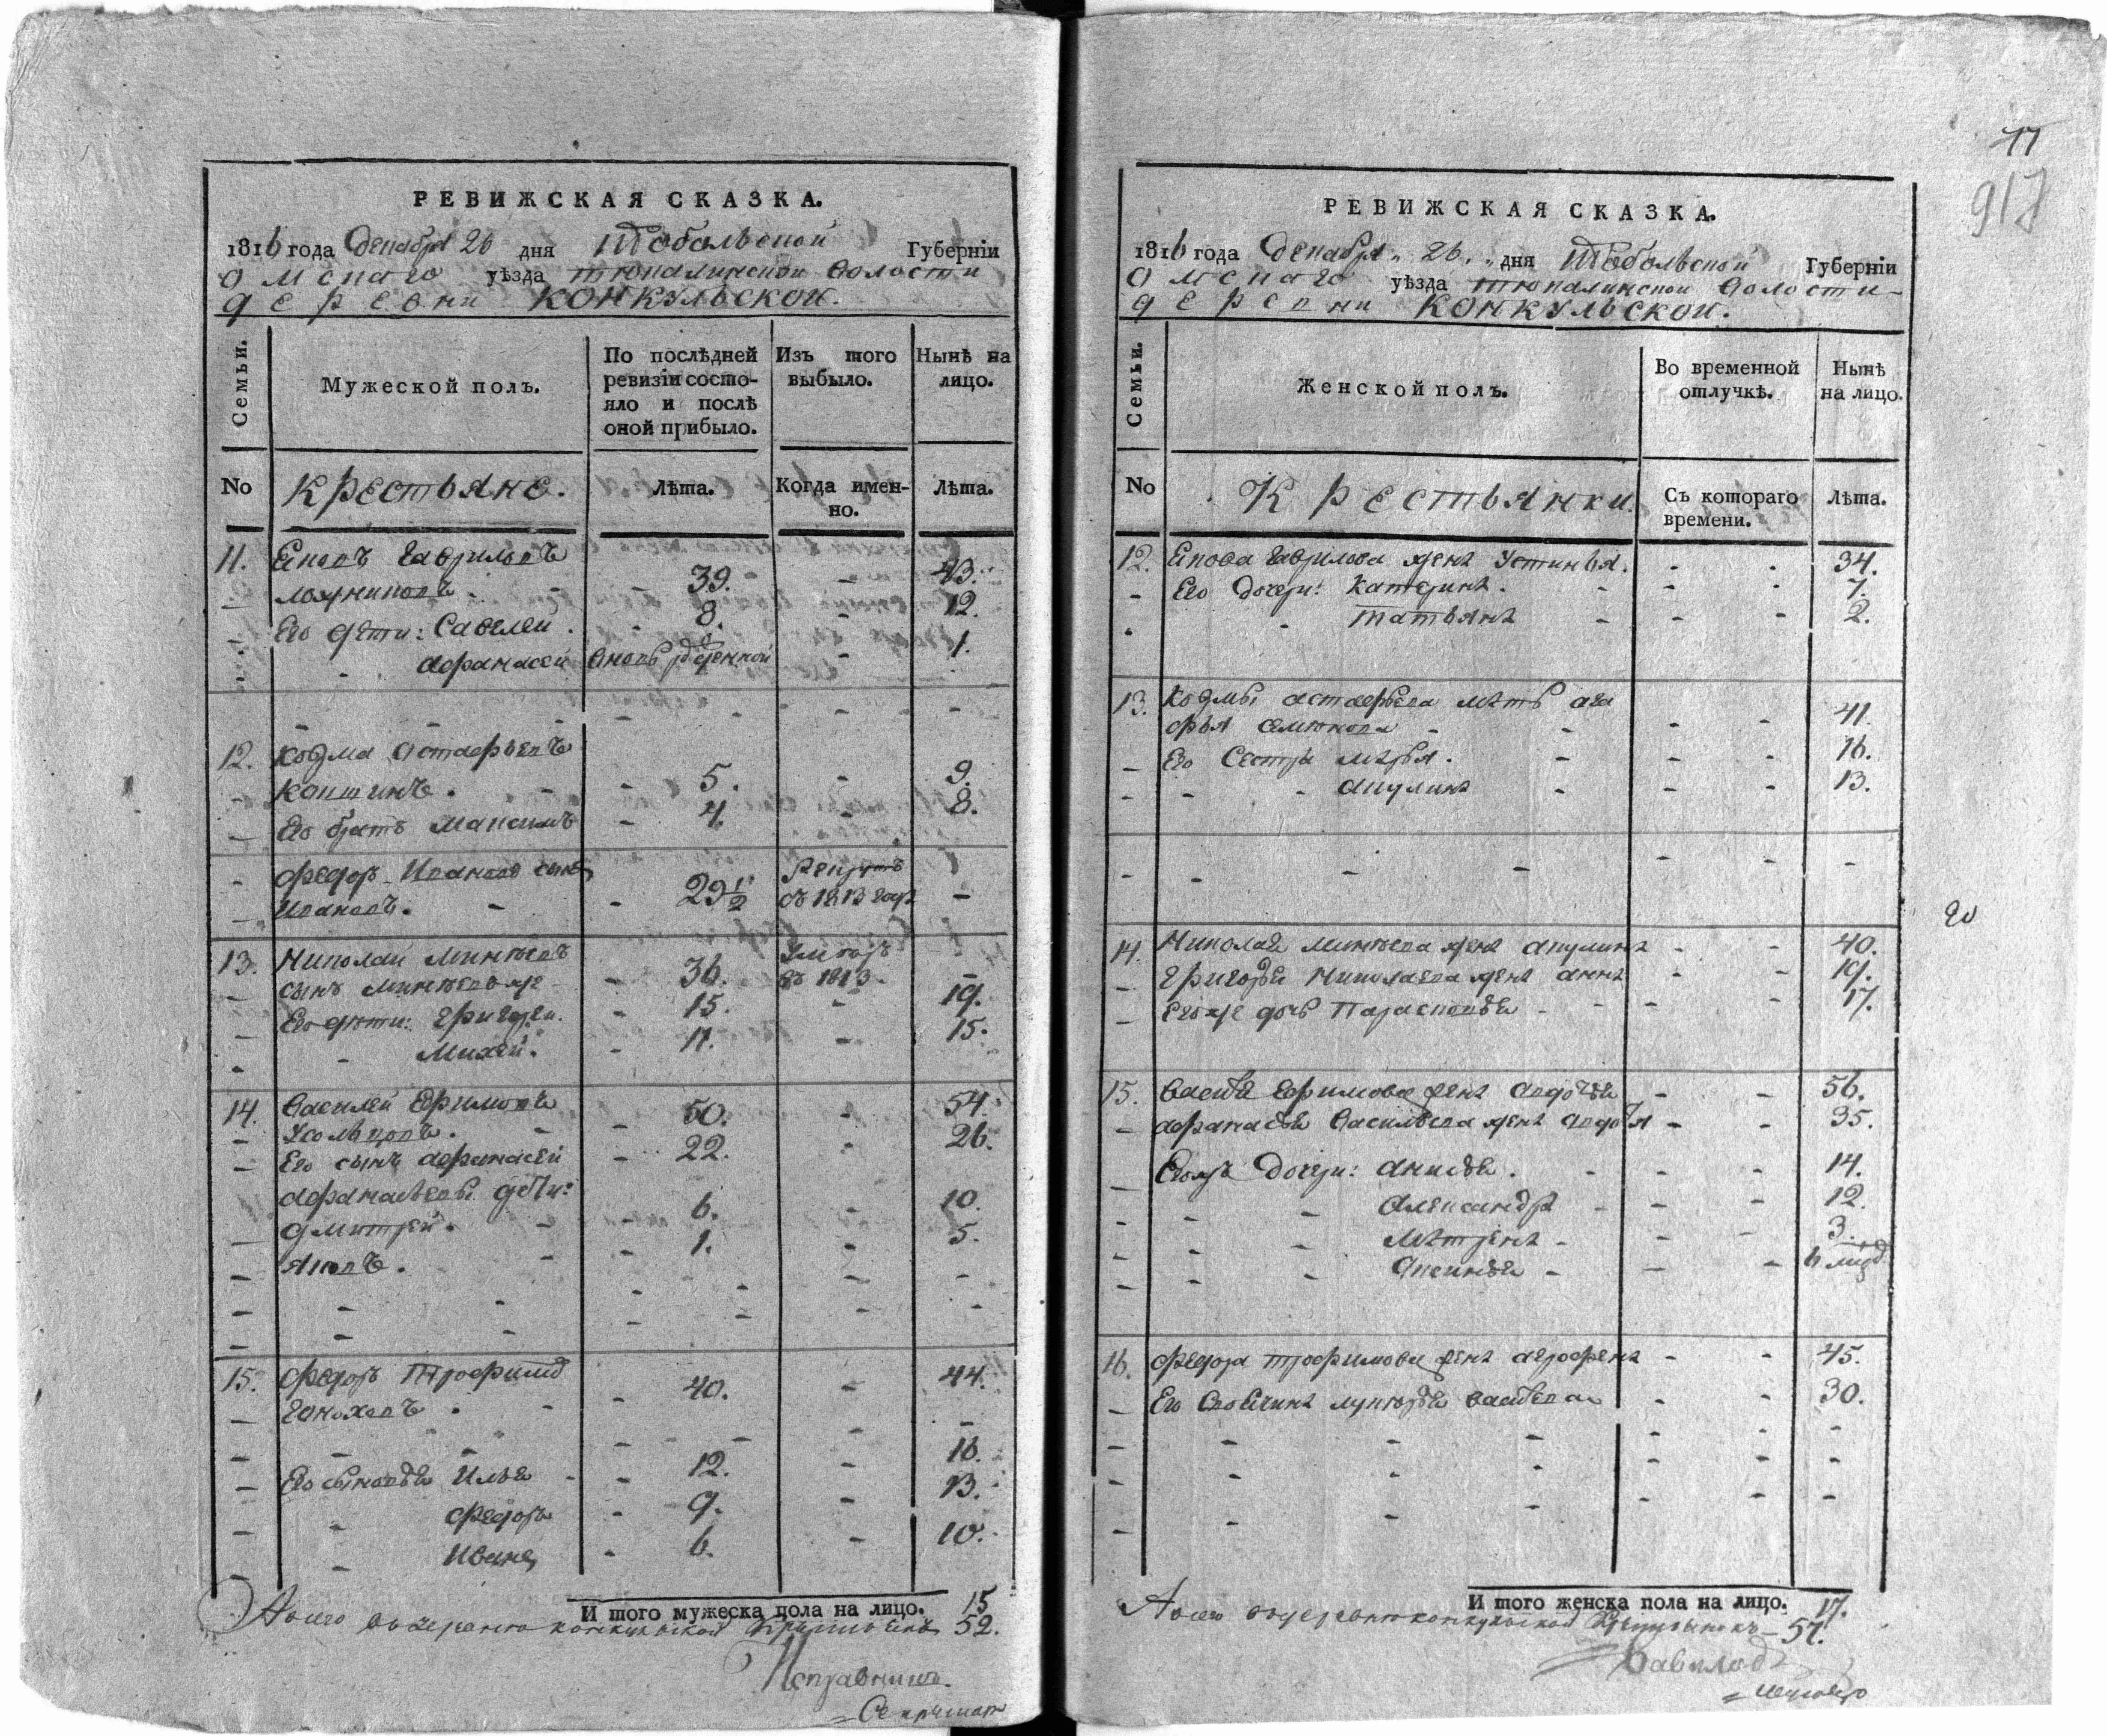 РЕВИЖСКАЯ СКАЗКА.
1816 года Декабря 26 дня Тобольской Губерніи
Омскаго уѣзда тюкалинской волости
деревни КОНКУЛЬСКОЙ.
Семьи.
Мужеской полъ.
По послѣдней ревизіи состо-
яло и послѣ
оной прибыло.
Изъ того
выбыло.
Нынѣ на
лицо.
No
Крестьяне.
Лѣта.
Когда имен-
но.
Лѣта.
11. Яковъ Гаврильевъ
Ложниковъ - 39. - 43.
Его дети: Савелей - 8. - 12.
Афанасей вновь рожденной - 1.
12. Козма Астафьевъ
Кокшинъ - 5. - 9.
Его братъ Максимъ - 4. - 8.
Федоръ Ивановъ сынъ
Ивановъ. - 29 1/2 Рекрутъ въ 1813 году -
13. Николай Минѣевъ
сынъ Минѣев же - 36. Умеръ въ 1813. -
Его дѣти: Григорей. - 15. - 19.
Михей. - 11. - 15.
14. Василей Ефимовъ
Усольцовъ. - 50. - 54.
Его сынъ Афанасей - 22. - 26.
Афанасьевы дѣти:
Дмитрей. - 6. - 10.
Яковъ. - 1. - 5.
15. Федоръ Трофимов
- 40. - 44.
Его сыновья Илья - 12. - 16.
Федоръ - 9. - 13.
Иванъ - 6. - 10.
И того мужеска пола на лицо. 15
Всего въ деревне конкульской 52.
Исправникъ
Секретарь
11
917
РЕВИЖСКАЯ СКАЗКА.
1816 года Декабря 26. дня Тобольской Губерніи
Омскаго уѣзда тюкалинской волости
деревни КОНКУЛЬСКОЙ.
Семьи.
Женской полъ.
Во временной
отлучкѣ.
Нынѣ
на лицо.
No
Крестьянки.
Съ котораго
времени.
Лѣта.
12. Якова Гаврилова жена Устинья. - 34.
Его дочери: Катерина. - 7.
Татьяна - 2.
13. Козмы Астафьева мать Ага
фья - 41.
Его Сестры Марья. - 16.
Акулина - 13.
14. Николая Минѣева жена Акулина - 40.
Григорья Николаева жена Анна - 19.
Его же дочь Парасковья - 17.
15. Василья Ефимова жена Авдотья - 56.
Афанасья Васильева жена Авдотья - 35.
Его жъ Дочери: Анисья. - 14.
Александра - 12.
Матрена - 3.
Аксинья -
16. Федора Трофимова жена Агрофена - 45.
Его Своячина Лукерья Васильева - 30.
И того женска пола на лицо. 17.
Всего въ деревне конкульской 57.